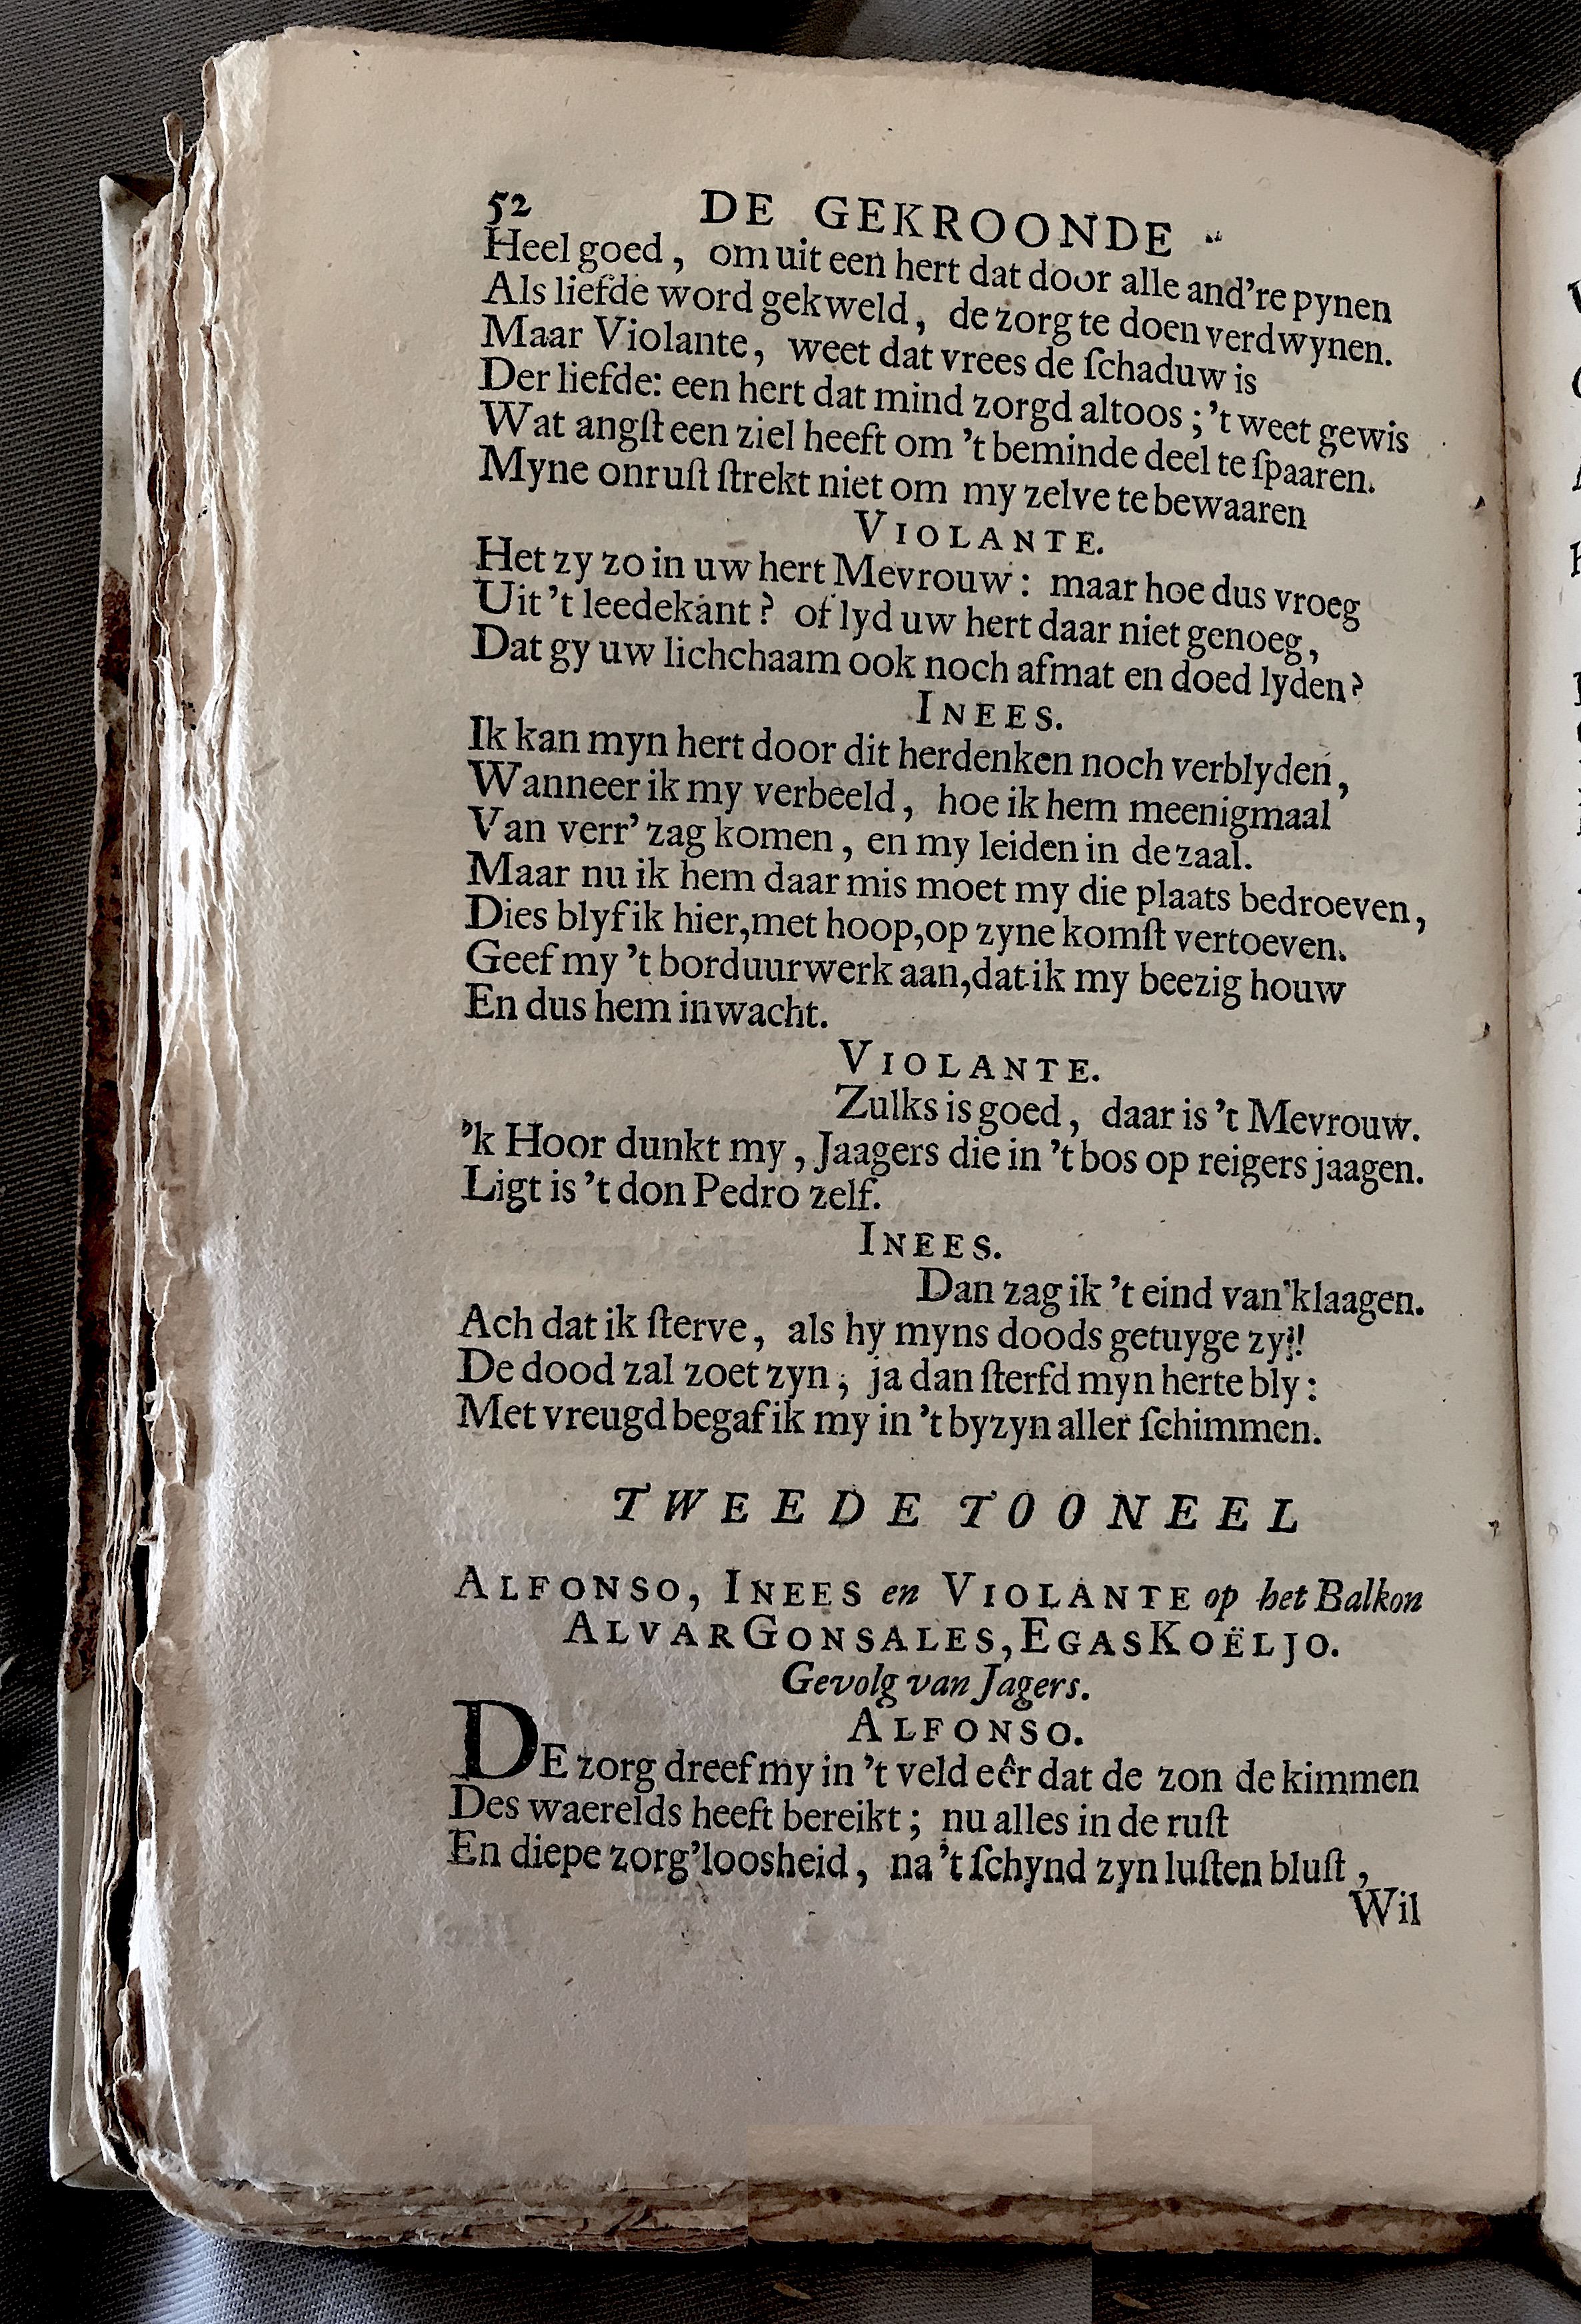 52 DE GEKROONDE
Heel goed, om uit een hert dat door alle and're pynen
Als liefde word gekweld, de zorg te doen verdwynen.
Maar Violante, weet dat vrees de ſchaduw is
Der liefde: een hert dat mind zorgd altoos; 't weet gewis
Wat angſt een ziel heeft om 't beminde deel te ſpaaren.
Myne onruſt ſtrekt niet om my zelve te bewaaren
VIOLANTE.
Het zy zo in uw hert Mevrouw: maar hoe dus vroeg
Uit 't leedekant? of lyd uw hert daar niet genoeg,
Dat gy uw lichchaam ook noch afmat en doed lyden?
INEES.
Ik kan myn hert door dit herdenken noch verblyden,
Wanneer ik my verbeeld, hoe ik hem meenigmaal
Van verr' zag komen, en my leiden in de zaal.
Maar nu ik hem daar mis moet my die plaats bedroeven,
Dies blyf ik hier, met hoop, op zyne komſt vertoeven.
Geef my 't borduurwerk aan, dat ik my beezig houw
En dus hem inwacht.
VIOLANTE.
Zulks is goed, daar is 't Mevrouw.
'k Hoor dunkt my, Jaagers die in 't bos op reigers jaagen.
Ligt is 't don Pedro zelf.
INEES.
Dan zag ik 't eind van 'klaagen.
Ach dat ik ſterve, als hy myns doods getuyge zy!!
De dood zal zoet zyn; ja dan ſterfd myn herte bly:
Met vreugd begaf ik my in 't byzyn aller ſchimmen.
TWEEDE TOONEEL
ALFONSO, INEES en VIOLANTE op het Balkon
ALVAR GONSALES, EGAS KOËLJO.
Gevolg van Jagers.
ALFONSO.
DE zorg dreef my in 't veld eêr dat de zon de kimmen
Des waerelds heeft bereikt; nu alles in de ruſt
En diepe zorg'loosheid, na 't ſchynd zyn luſten bluſt,
Wil